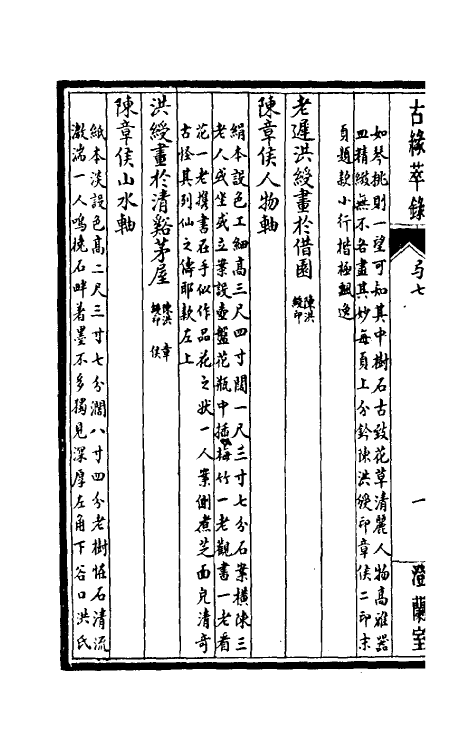 古緣萃錄
卷七
一
澄蘭室
如琴挑則一望可知其中樹石古致花草清麗人物高雅器
皿精緻無不各盡其妙每頁上分鈐陳洪綬印章侯二印末
頁題款小行楷極飄逸
老遲洪綬畫於借園 陳洪綬印
陳章侯人物軸
絹本設色工細高三尺四寸闊一尺三寸七分石案橫陳三
老人或坐或立案設壺盤花瓶中插梅竹一老觀書一老看
花一老携書在手似作品花之狀一人案側煮芝面皃清奇
古怪其列仙之儔耶款左上
洪綬畫於清谿茅屋 陳洪綬印 章侯
陳章侯山水軸
紙本淡設色高二尺三寸七分濶八寸四分老樹怪石清流
激湍一人鳴橈石畔着墨不多獨見深厚左角下谷口洪氏